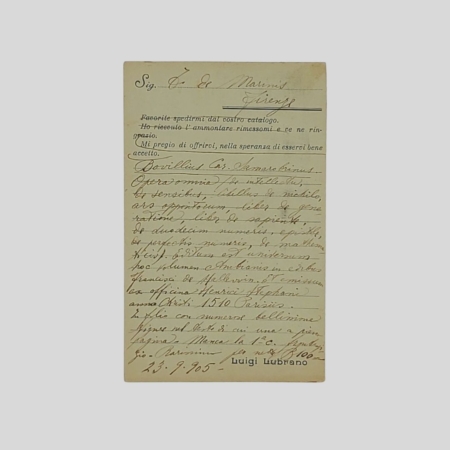 Sig. T. de Marinis
Firenze
Favorite spedirmi dal vostro catalogo.
Ho ricevuto l'ammontare rimessomi e ve ne rin-
grazio.
Mi pregio di offrirvi, nella speranza di esservi bene
accetto.
Bovillius Car. Samarobrinus
Opera omnia (de intellectu,
de sensibus, libellus de nichilo,
ars oppositorum, liber de gene
ratione, liber de sapiente,
de duodecim numeris, epistole,
de perfectis numeris, de mathe
hoc volumen Ambianis in edibus
Francisci de
ex officina Henrici Stephani
anno Christi 1510 Parisiis.
In folio con numerose bellissime
figure nel testo di cui una a piena
pagina. Manca la 1ª c.
gio. Rarissimo 100
23-9-905 Luigi Lubrano